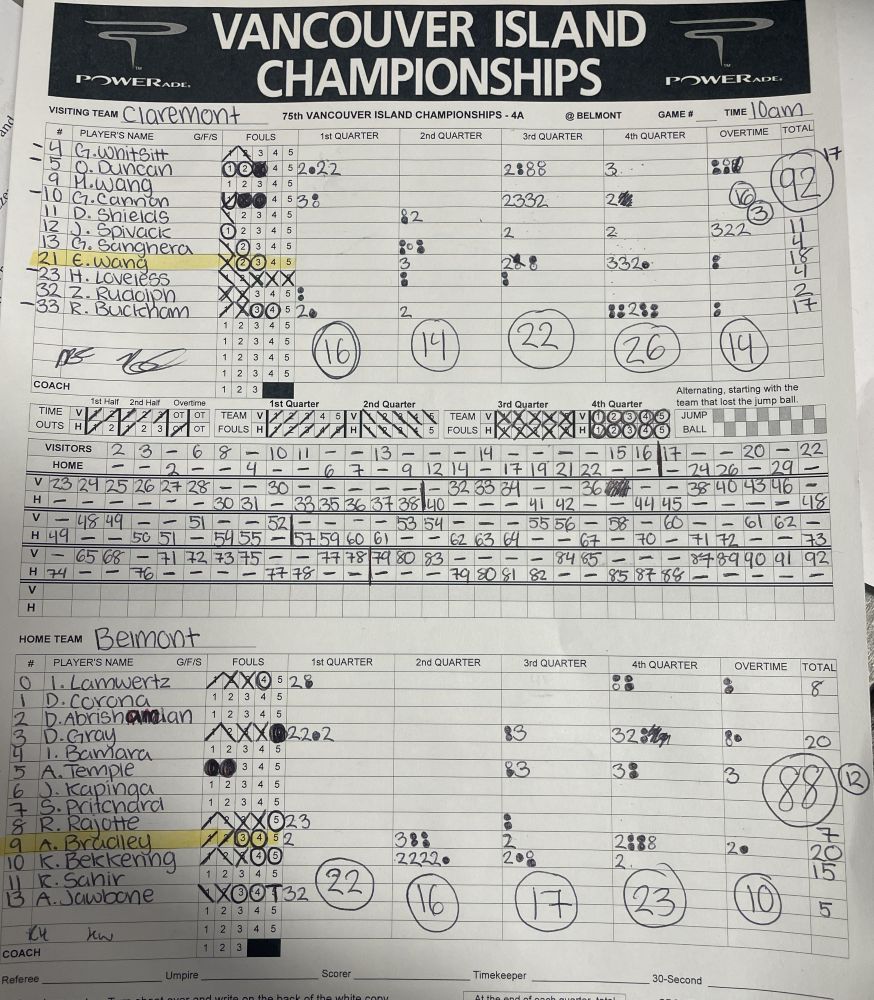 VANCOUVER ISLAND
CHAMPIONSHIPS
POWERADE.
POWERADE.
VISITING TEAM Claremont 75TH VANCOUVER ISLAND CHAMPIONSHIPS - 4A @ BELMONT GAME # TIME 10am
# PLAYER'S NAME G/F/S FOULS 1ST QUARTER 2ND QUARTER 3RD QUARTER 4TH QUARTER OVERTIME TOTAL
4 G. Whitsitt 3 4 5
5 O. Duncan 1 2 4 5 3 17
9 M. Wang 1 2 3 4 5
10 G. Cannon 4 5 2332 2 16 92
11 D. Shields 2 3 4 5 3
12 J. Spivack 1 2 3 4 5 2 2 322 11
13 G. Sanghera 2 3 4 5 4
21 E. Wang 2 3 4 5 3 332 18
23 H. Loveless 4
32 Z. Rudolph 3 4 5 2
33 R. Buckham 3 4 5 2 2 17
1 2 3 4 5
1 2 3 4 5
1 2 3 4 5
1 2 3 4 5
16 14 22 26 14
COACH 1 2 3
1st Half 2nd Half Overtime 1st Quarter 2nd Quarter 3rd Quarter 4th Quarter
Alternating, starting with the team that lost the jump ball.
TIME OUTS V H OT OT TEAM FOULS V H TEAM FOULS V H JUMP BALL
VISITORS 2 3 - 6 8 - 10 11 - - 13 - - - 14 - - - - 15 16 17 - - 20 - 22
HOME - - 2 - - 4 - - 6 7 - 9 12 14 - 17 19 21 22 - - - 24 26 - 29 -
V 23 24 25 26 27 28 - - 30 - - - - - - - 32 33 34 - - 36 - - - 38 40 43 46 -
H - - - - - - 30 31 - 33 35 36 37 38 40 - - - 41 42 - - 44 45 - - - - 48
V - 48 49 - - 51 - - 52 - - - - 53 54 - - - 55 56 - 58 - 60 - - 61 62 -
H 49 - - 50 51 - 54 55 - 57 59 60 61 - - 62 63 64 - - 67 - 70 - 71 72 - - 73
V - 65 68 - 71 72 73 75 - - 77 78 79 80 83 - - - - 84 85 - - - 87 89 90 91 92
H 74 - - 76 - - - - 77 78 - - - - - 79 80 81 82 - - 85 87 88 - - - - -
V
H
HOME TEAM Belmont
# PLAYER'S NAME G/F/S FOULS 1ST QUARTER 2ND QUARTER 3RD QUARTER 4TH QUARTER OVERTIME TOTAL
0 I. Lamwertz 4 5 8
1 D. Corona 1 2 3 4 5
2 D. Abrishamian 1 2 3 4 5
3 D. Gray 20
4 I. Bamara 1 2 3 4 5
5 A. Temple 3 4 5 3 12
6 J. Kapinga 1 2 3 4 5 88
7 S. Pritchard 1 2 3 4 5
8 R. Rajotte 5 23 7
9 A. Bradley 3 4 5 2 2 20
10 K. Bekkering 4 5 2222 2 15
11 R. Sahir 1 2 3 4 5
13 A. Jawbone 3 4 32 5
1 2 3 4 5
1 2 3 4 5
22 16 17 23 10
COACH 1 2 3
Referee Umpire Scorer Timekeeper 30-Second